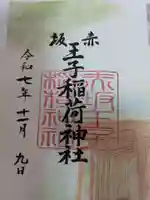 赤坂
王子稲荷神社
令和七年十一月九日